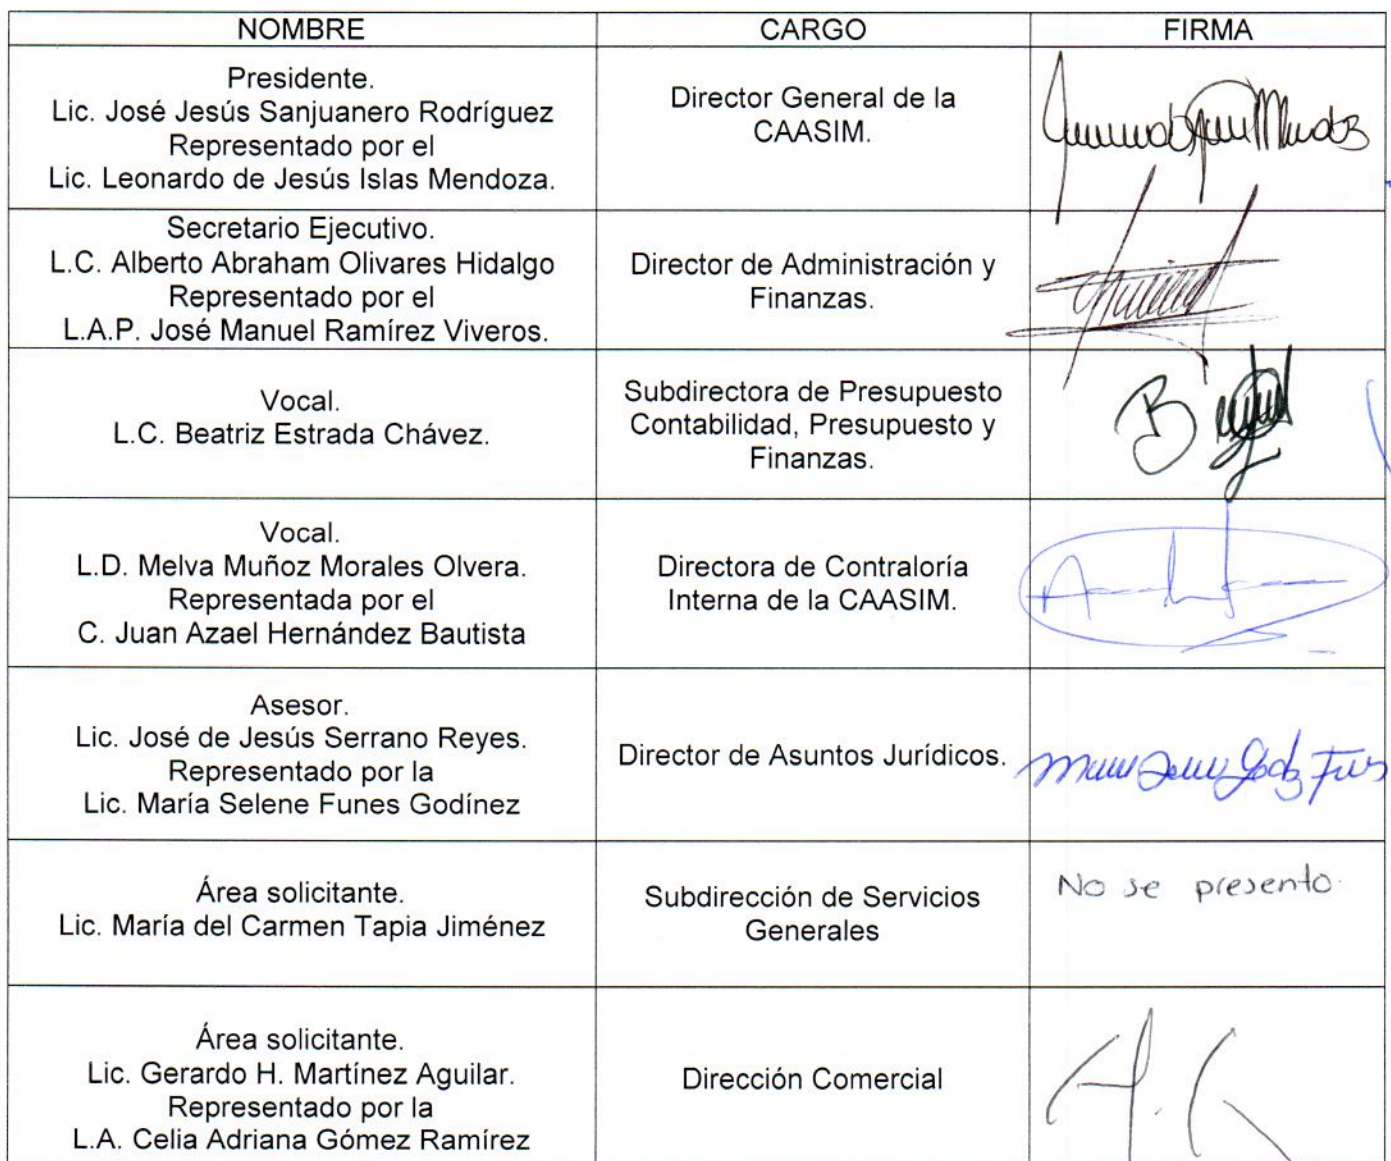 NOMBRE CARGO FIRMA
Presidente.
Lic. José Jesús Sanjuanero Rodríguez
Representado por el
Lic. Leonardo de Jesús Islas Mendoza.
Director General de la
CAASIM.
Secretario Ejecutivo.
L.C. Alberto Abraham Olivares Hidalgo
Representado por el
L.A.P. José Manuel Ramírez Viveros.
Director de Administración y
Finanzas.
Vocal.
L.C. Beatriz Estrada Chávez.
Subdirectora de Presupuesto
Contabilidad, Presupuesto y
Finanzas.
Vocal.
L.D. Melva Muñoz Morales Olvera.
Representada por el
C. Juan Azael Hernández Bautista
Directora de Contraloría
Interna de la CAASIM.
Asesor.
Lic. José de Jesús Serrano Reyes.
Representado por la
Lic. María Selene Funes Godínez
Director de Asuntos Jurídicos.
Área solicitante.
Lic. María del Carmen Tapia Jiménez
Subdirección de Servicios
Generales
No se presento.
Área solicitante.
Lic. Gerardo H. Martínez Aguilar.
Representado por la
L.A. Celia Adriana Gómez Ramírez
Dirección Comercial